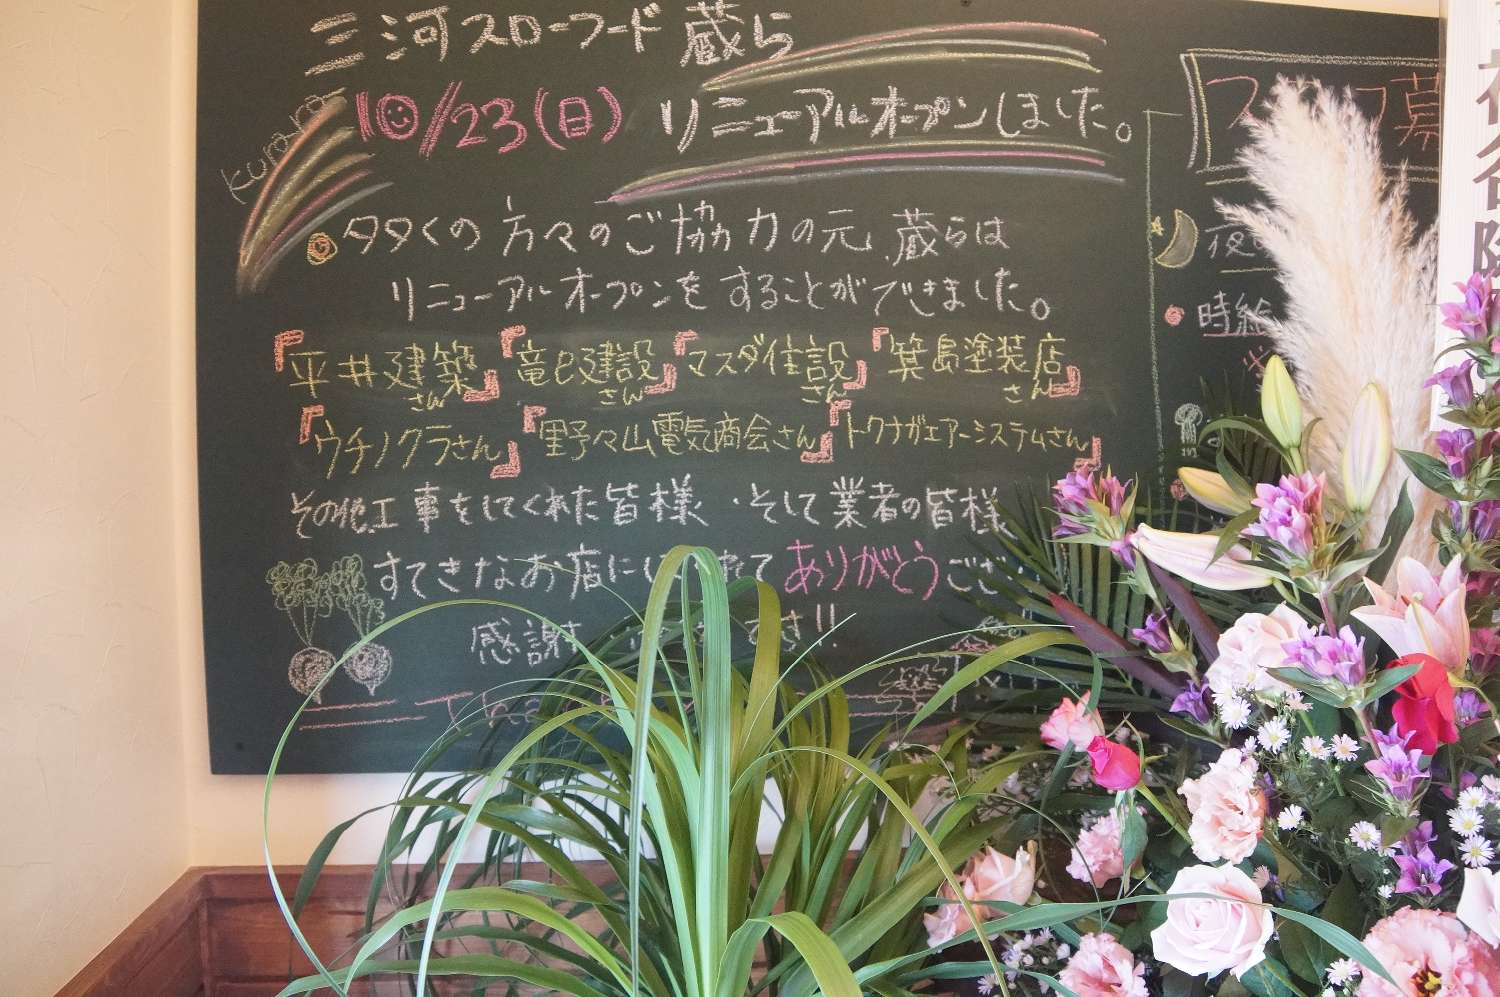 三河スローフード 蔵ら
kurara
10/23(日) リニューアルオープンしました。
タタくの方々のご協力の元、蔵らは
リニューアルオープンをすることができました。
『平井建築さん』『竜巳建設さん』『マスダ住設さん』『箕島塗装店さん』
『ウチノクラさん』『野々山電気商会さん』『トクナガエアーシステムさん』
その他工事をしてくれた皆様・そして業者の皆様
すてきなお店に てありがとうござ
感謝 ます!!
ス フ募
夜
時給